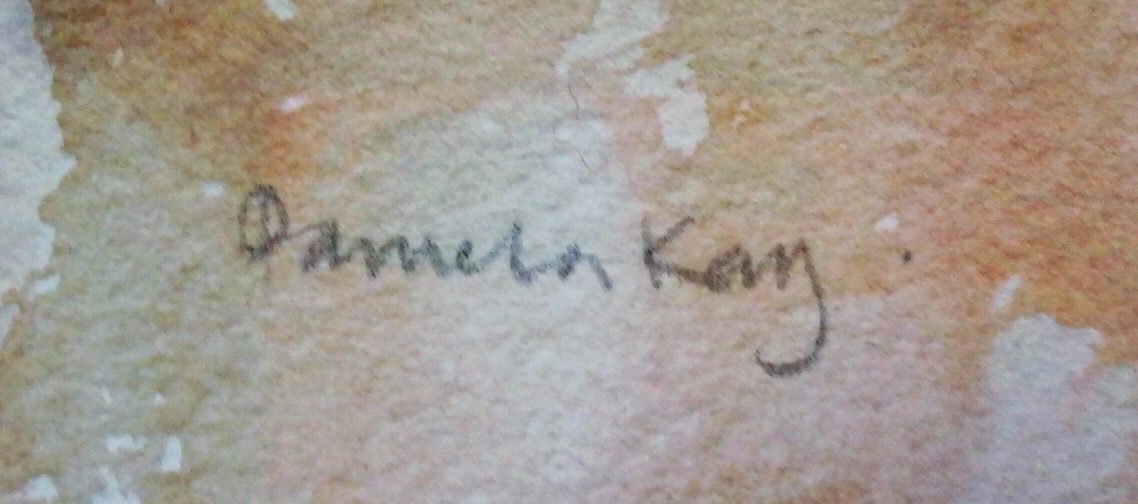 Pamela Kay.